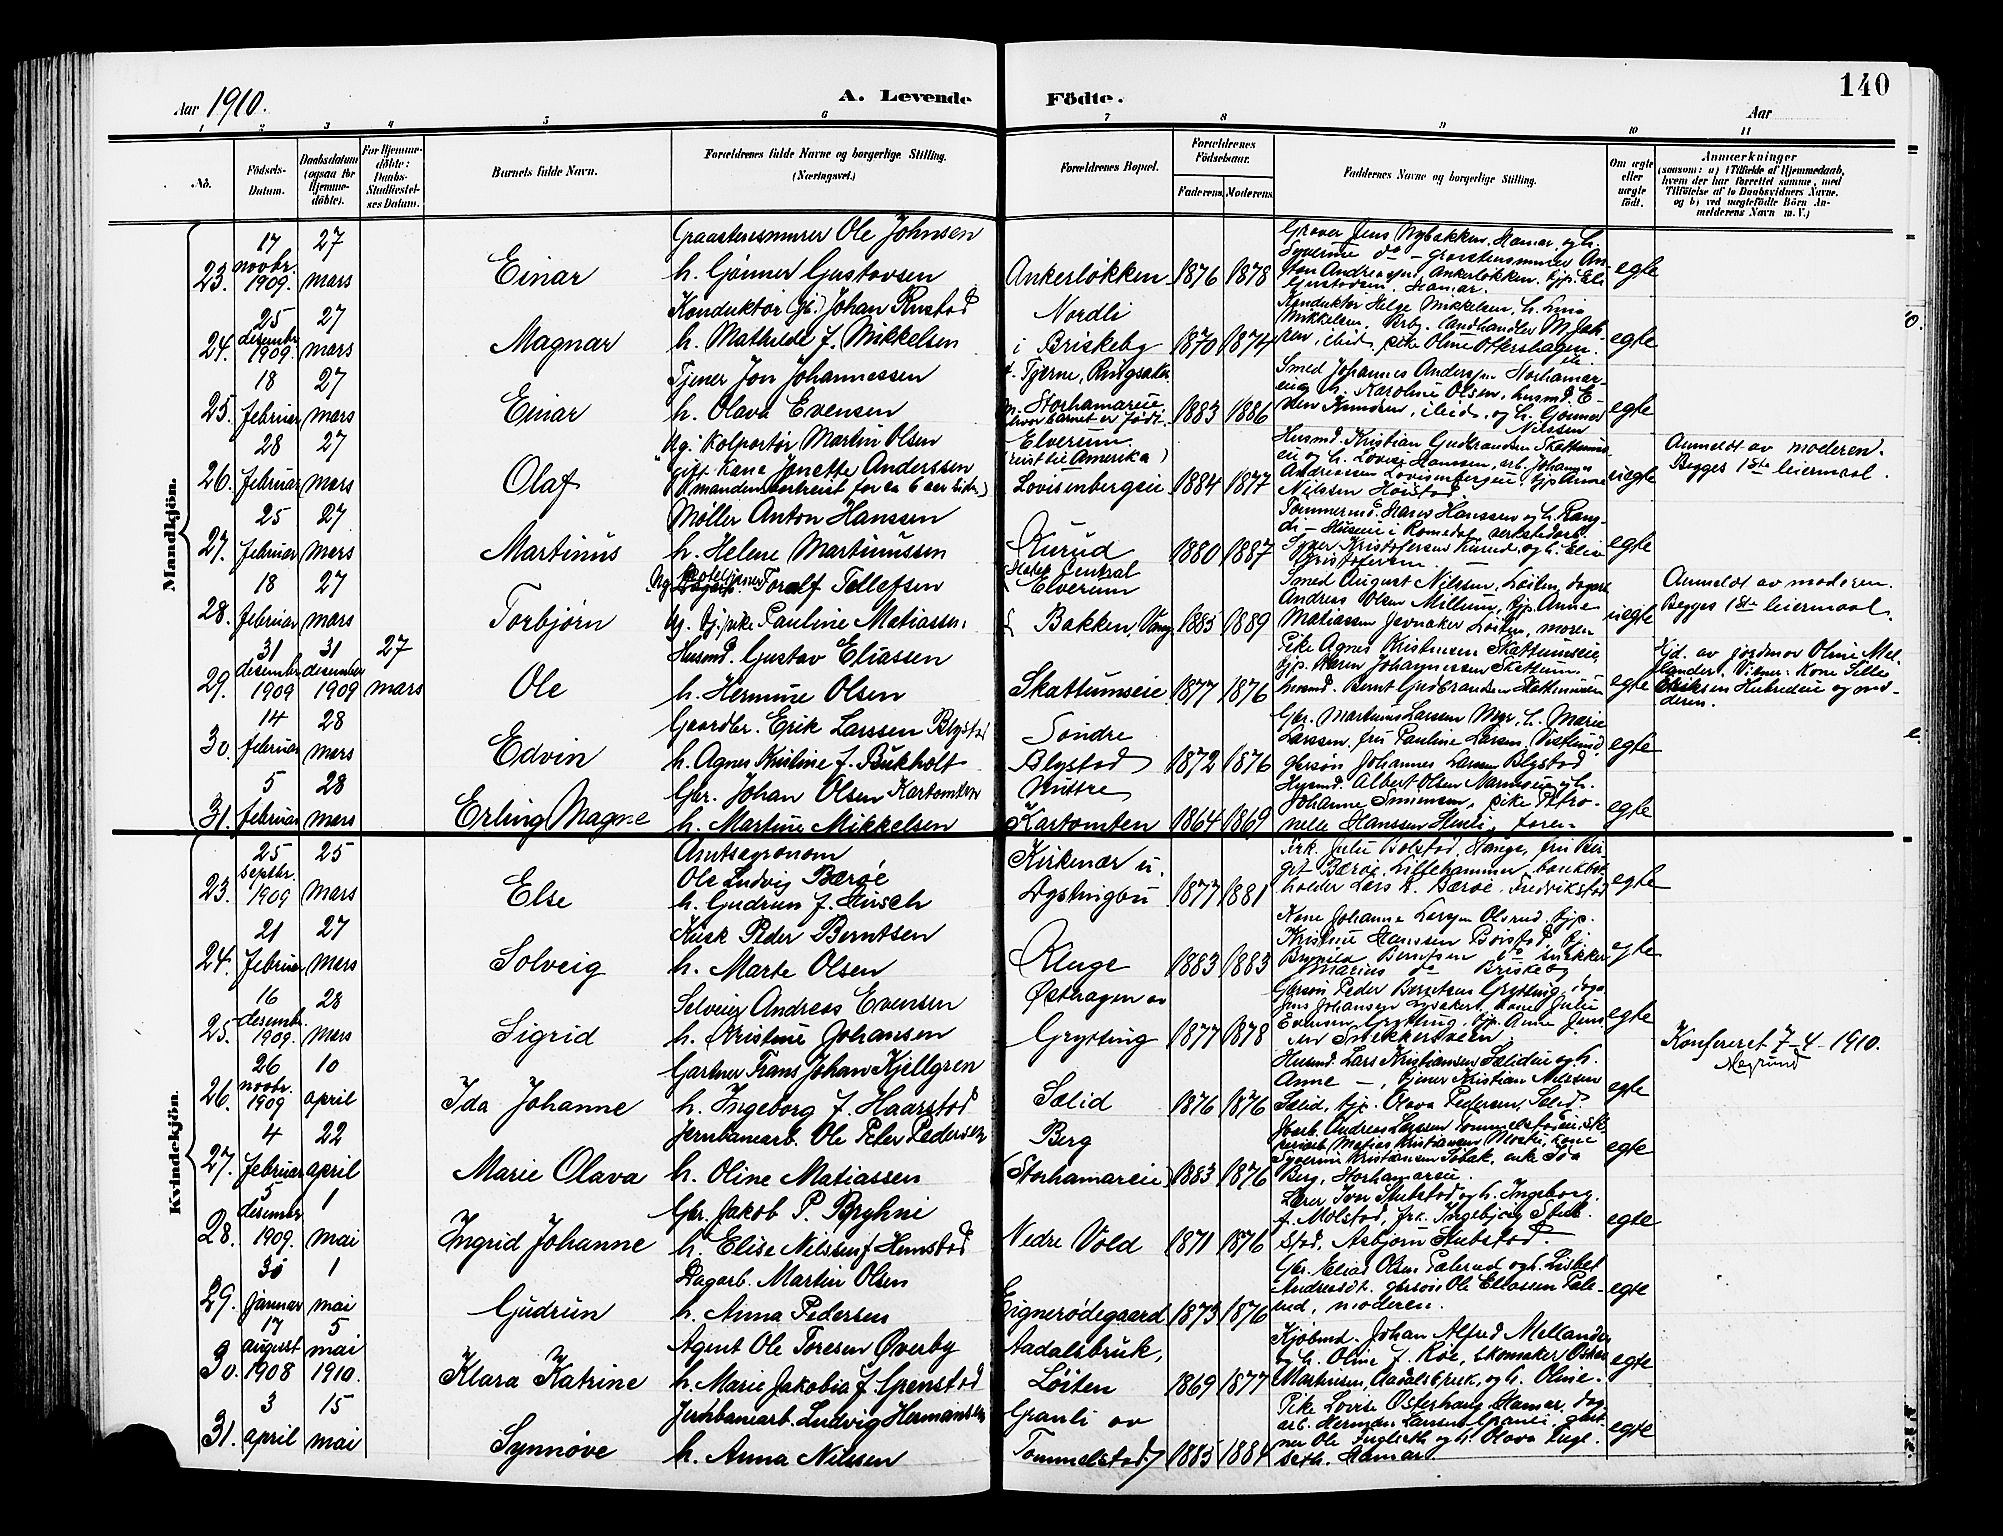 140
Aar 1910.
A. Levende Födte.
Aar
1 2 3 4 5 6 7 8 9 10 11
No.
Födsels-Datum.
Daabsdatum (ogsaa for Hjemmedöbte).
For Hjemmedöbte: Daabs-Stadfæstelses Datum.
Barnets fulde Navn.
Forældrenes fulde Navne og borgerlige Stilling. (Næringsvei.)
Forældrenes Bopæl.
Forældrenes Födselsaar.
Faderens. Moderens.
Faddernes Navne og borgerlige Stilling.
Om ægte eller uægte födt.
Anmærkninger
(saasom: a) i Tilfælde af Hjemmedaab,
hvem der har forrettet samme, med
Tilföielse af to Daabsvidners Navne,
og b) ved uægtefödte Börn Anmelderens Navn m. V.)
Mandkjön.
23. 17 novbr. 1909. 27 mars Einar
Graastensmurer Ole Johnsen
h. Gunner Gustavsen
Ankerløkken 1876 1878
Graver Jens Nybakken, Hamar, og h.
Syverine do - graastensmurer
Andreassen, Ankerløkken, Eli
Gustavsen, Hamar.
egte
24. 25 desembr 1909. 27 mars Magnar
Konduktør Johan Rustad
h. Mathilde f. Mikkelsen
Nordli
i Briskeby 1870 1874
Konduktør Helge Mikkelsen, h. Lina
Mikkelsen, landhandler
ibid, pike Oline Ottershagen.
egte
25. 18 februar 27 mars Einar
Tjener Jon Johannessen
h. Olava Evensen
f. Tjerne, Ringsaker
m. Storhamareie
(hvor barnet er født) 1883 1886
Smed Johannes Andersen Storhamareie
og h. Karoline Olsen, husmd.
Knudsen, ibid, og h. Gunner
Nilssen
egte
26. 28 februar 27 mars Olaf
Ug. kolportør Martin Olsen
gift kone Jonette Anderssen
(manden bortreist for ca 6 aar siden)
Elverum
(reist til Amerika)
Lovisenbergeie 1884 1877
Husmd. Kristian Gudbrandsen Skattumseie
og h. Lovise Hanssen, arb. Johannes
Andreassen Lovisenbergeie, Anne
Nilssen Hørstad
uegte
Anmeldt av moderen.
Begges 1ste leiermaal.
27. 25 februar 27 mars Martinus
Møller Anton Hanssen
h. Helene Martinussen
Kurud 1880 1887
Tømmermd. Hanssen og h.
Huseie i Romedal, arbeidsarb.
Syver Kristofersen Kurud, og h. Elise
Kristofersen
egte
28. 18 februar 27 mars Torbjørn
Ug. hoteltjener Toralf Tellefsen
ug. tj. pike Pauline Matiassen.
Hotel Central
Elverum
Bakken, Vang 1885 1889
Smed August Nilsen, Løiten, dagarb.
Andreas Olsen Millum, tjp. Anne
Matiassen Jevnaker Løiten, moren
uegte
Anmeldt av moderen.
Begges 1ste leiermaal.
29. 31 desembr 1909 31 desember 1909 27 mars Ole
Husmd. Gustav Eliassen
h. Hermine Olsen
Skattumseie 1877 1876
Pike Agnes Kristinesen Skattumseie,
tjp. Karen Johannessen Skattum,
husmd. Bernt Gudbrandsen Skattumseie
egte
Hjd. av jordmor Oline Mellander. Vitner: Kone Sille
Eriksen Huhredeie og moderen.
30. 14 februar 28 mars Edvin
Gaardbr. Erik Larssen Blystad
h. Agnes Kristine f. Bukholt
Søndre
Blystad 1872 1876
Gbr. Martinus Larssen Myr, h. Marie
Larssen, fru Pauline Larsen,
gbrsøn Johannes Larsen Blystad
egte
31. 5 februar 28 mars Erling Magne
Gbr. Johan Olsen Kartomten
h. Martine Mikkelsen
Nistre
Kartomten 1864 1869
Husmd. Albert Olsen og h.
Johanne Simensen, pike Petronelle Hanssen
egte
Kvindekjön.
23. 25 septbr. 1909 25 mars Else
Amtsagronom
Ole Ludvig Bærøe
h. Gudrun f. Hirsch
Kirkenær u.
Dystingbu 1877 1881
Frk. Julie Bolstad, Stange, fru Bergit Bærøe, Lillehammer, bankbokholder Lars Bærøe, Fredrikstad
egte
24. 21 februar 27 mars Solveig
Kusk Peder Berntsen
h. Marte Olsen
Kluge 1883 1883
Kone Johanne Larsen Olsrud, tjp.
Kristine Hanssen Børstad, tj.
Berntsen do snekker
Marius do Briskeby
egte
25. 16 desembr. 1909. 28 mars Sigrid
Selveier Andreas Evensen
h. Kristine Johansen
Østhagen av
Grytting 1877 1878
Gbrsøn Peder Berntsen Grytting,
Jens Johansen Lysaker, kone Julie
Evensen Grytting, tjp. Anne
Snekkersveen.
egte
Konfereret 7-4-1910.
26. 26 novbr. 1909 10 april Ida Johanne
Gartner Frans Johan Kjellgren
h. Ingeborg f. Haarstad
Sælid 1876 1876
Husmd. Lars Kristiansen Sælideie og h.
Anne -, tjener Kristian Nilssen
Sælid, tjp. Olava Pedersen, Sælid
egte
27. 4 februar 22 april Marie Olava
Jernbanearb. Ole Peter Pedersen
h. Oline Matiassen
Berg
(Storhamareie) 1883 1876
Jbarb. Andreas Larssen Tommelstadeie,
Matias Kristiansen, kone
Syverine Kristiansen, enke Ida
Berg, Storhamareie.
egte
28. 5 desember 1909. 1 mai Ingrid Johanne
Gbr. Jakob P. Bryhni
h. Elise Nilssen f. Hemstad
Nedre Vold 1871 1876
Lærer Iver Stubstad og h. Ingeborg
f. Molstad, frk. Ingebjørg Stubstad, Asbjørn Stubstad.
egte
29. 30 januar 1 mai Gudrun
Dagarb. Martin Olsen
h. Anna Pedersen
Eignerødegaard 1873 1876
Gbr. Elias Olsen Pælerud og h. Lisbet
Andreasdt. gbrsøn Ole Eliassen Pælerud, moderen.
egte
30. 17 august 1908 5 mai 1910. Klara Katrine
Agent Ole Toresen Øverby
h. Marie Jakobia f. Grenstad
Aadalsbruk,
Løiten 1869 1877
Kjøbmd. Johan Alfred Mellander
og h. Oline f. Roe, skomaker Oskar
Martinsen, Aadalsbruk, og h. Oline.
egte
31. 3 april 15 mai Synnøve
Jernbanearb. Ludvig Hermansen
h. Anna Nilssen
Granli av
Tommelstad 1885 1884
Pike Lovise Østerhaug Hamar, dagarb. Herman Larsen Granli,
Ole Fuglseth og h. Olava Fuglseth. Hamar.
egte